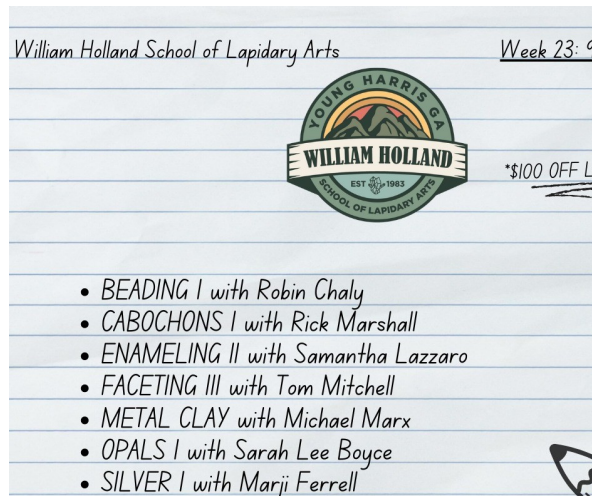 William Holland School of Lapidary Arts
Week 23: 9
YOUNG HARRIS GA
WILLIAM HOLLAND
EST 1983
SCHOOL OF LAPIDARY ARTS
*$100 OFF L
• BEADING I with Robin Chaly
• CABOCHONS I with Rick Marshall
• ENAMELING II with Samantha Lazzaro
• FACETING III with Tom Mitchell
• METAL CLAY with Michael Marx
• OPALS I with Sarah Lee Boyce
• SILVER I with Marji Ferrell